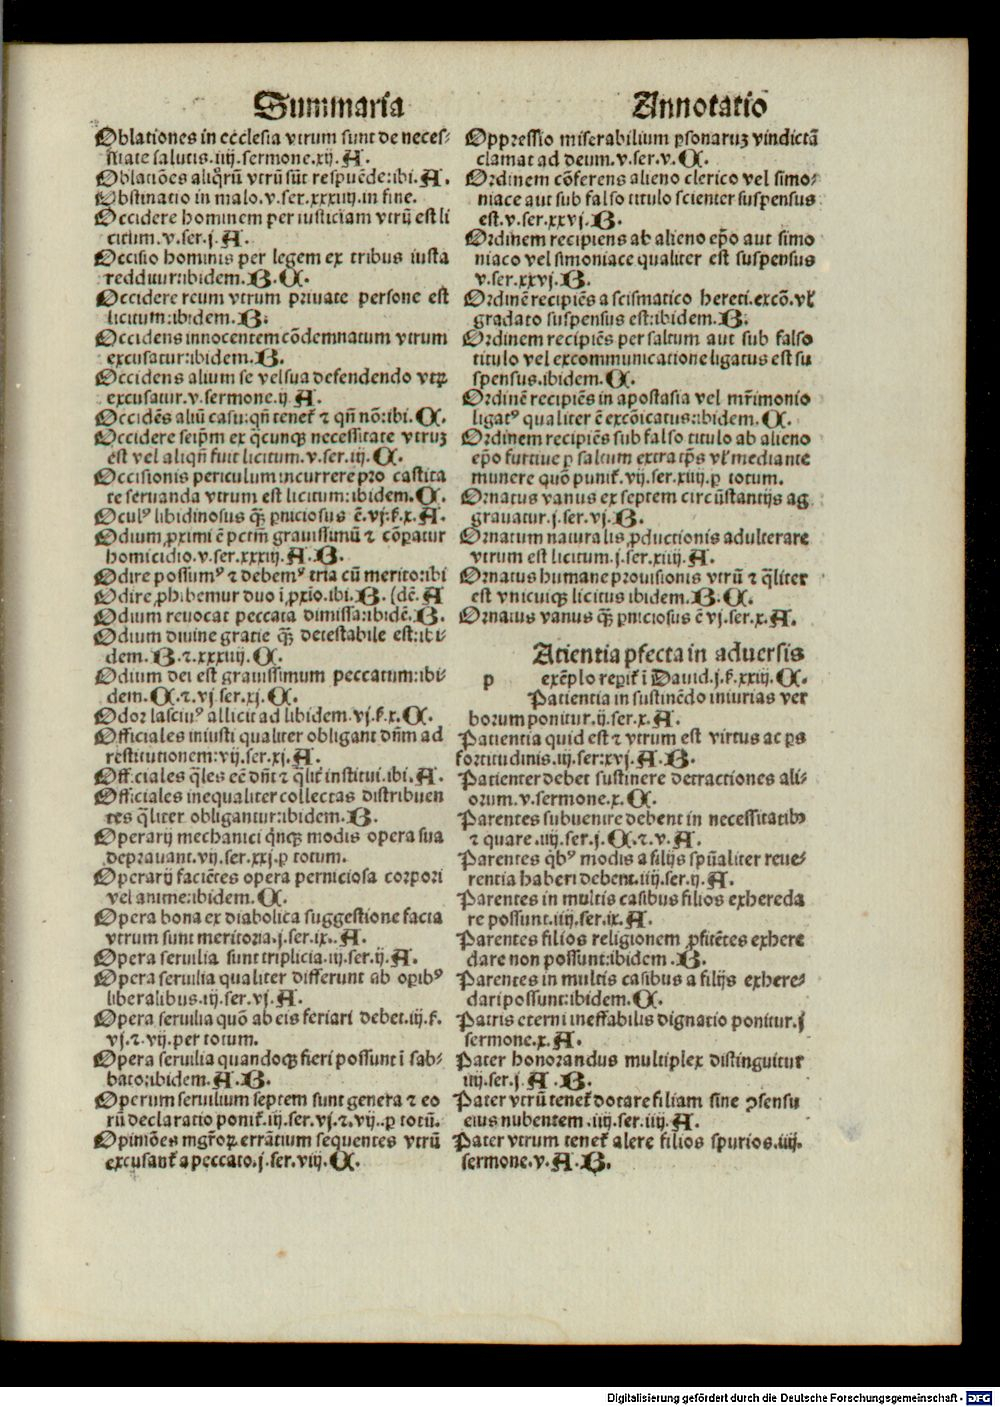 Summaria
Oblationes in ecclesia vtrum sunt de neces-
sitate salutis.iiij.sermone.xij.A.
Oblatiões aliq̃rũ vtrũ sũt respuẽde:ibi.A.
Obstinatio in malo.v.ser.xxxiiij.in fine.
Occidere hominem per iusticiam vtrũ est li
citum.v.ser.j.A.
Occisio hominis per legem ex tribus iusta
redditur:ibidem.B.C.
Occidere reum vtrum priuate persone est
licitum:ibidem.B.
Occidens innocentem cõdemnatum vtrum
excusatur:ibidem.B.
Occidens alium se vel sua defendendo vtꝝ
excusatur.v.sermone.ij.A.
Occidẽs aliũ casu:qñ tenet᷑ ⁊ qñ nõ:ibi.C.
Occidere seip̃m ex q̃cunqꝫ necessitate vtruꝫ
est vel aliqñ fuit licitum.v.ser.iij.C.
Occisionis periculum incurrere pro castita
te seruanda vtrum est licitum:ibidem.C.
Oculꝰ libidinosus q̃ꝫ ꝑniciosus ẽ.vj.ẜ.x.A.
Odium ꝓximi ẽ pctm̃ grauissimũ ⁊ cõꝑatur
homicidio.v.ser.xxxiij.A.B.
Odire possumꝰ ⁊ debemꝰ tria cũ merito:ibi
Odire ꝓhibemur duo ĩ ꝓxĩo.ibi.B. (dẽ.A
Odium reuocat peccata dimissa:ibidẽ.B.
Odium diuine gratie q̃ꝫ detestabile est:ibi-
dem.B.⁊.xxxiiij.C.
Odium dei est grauissimum peccatum:ibi-
dem.C.⁊.vj ser.xj.C.
Odor lasciuꝰ allicit ad libidem.vj.ẜ.x.C.
Officiales iniusti qualiter obligant dñm ad
restitutionem:vij.ser.xj.A.
Officiales q̃les eẽ dñt ⁊ q̃lit᷑ institui.ibi.A.
Officiales inequaliter collectas distribuen
tes q̃liter obligantur:ibidem.B.
Operarij mechanici q̃nqꝫ modis opera sua
deprauant.vij.ser.xxj.ꝑ totum.
Operarij faciẽtes opera perniciosa corpori
vel anime:ibidem.C.
Opera bona ex diabolica suggestione facta
vtrum sunt meritoria.j.ser.ix.A.
Opera seruilia sunt triplicia.iij.ser.ij.A.
Opera seruilia qualiter differunt ab oꝑibꝰ
liberalibus.iij.ser.vj.A.
Opera seruilia quõ ab eis feriari debet.iij.ẜ.
vj.⁊.vij.per totum.
Opera seruilia quandoqꝫ fieri possunt ĩ sab-
bato:ibidem.A.B.
Operum seruilium septem sunt genera ⁊ eo
rũ declaratio ponit᷑.iij.ser.vj.⁊.vij.ꝑ totũ.
Opiniões mgr̃oꝝ errãtium sequentes vtrũ
excusant᷑ a peccato.j.ser.viij.C.
Annotatio
Oppressio miserabilium ꝑsonaruꝫ vindictã
clamat ad deum.v.ser.v.C.
Ordinem cõferens alieno clerico vel simo-
niace aut sub falso titulo scienter suspensus
est.v.ser.xxvj.B.
Ordinem recipiens ab alieno ep̃o aut simo
niaco vel simoniace qualiter est suspensus
v.ser.xxvj.B.
Ordinẽ recipiẽs a scismatico hereti.excõ.vl̕
gradato suspensus est:ibidem.B.
Ordinem recipiẽs per saltum aut sub falso
titulo vel excommunicatione ligatus est su
spensus.ibidem.C.
Ordinẽ recipiẽs in apostasia vel mr̃imonio
ligatꝰ qualiter ẽ excõicatus:ibidem.C.
Ordinem recipiẽs sub falso titulo ab alieno
ep̃o furtiue ꝑ saltum extra tp̃s vl̕ mediante
munere quõ punit᷑.vij.ser.xiiij.ꝑ totum.
Ornatus vanus ex septem circũstantijs ag
grauatur.j.ser.vj.B.
Ornatum naturalis ꝓductionis adulterare
vtrum est licitum.j.ser.xiiij.A.
Ornatus humane prouisionis vtrũ ⁊ q̃liter
est vnicuiqꝫ licitus ibidem.B.C.
Ornatus vanus q̃ꝫ ꝑniciosus ẽ vj.ser.x.A.
p
Atientia ꝑfecta in aduersis
exẽplo reꝑit᷑ ĩ Dauid.j.ẜ.xxiij.C.
Patientia in sustinẽdo iniurias ver
borum ponitur.ij.ser.x.A.
Patientia quid est ⁊ vtrum est virtus ac ꝑs
fortitudinis.iij.ser:xvj.A.B.
Patienter debet sustinere detractiones ali-
orum.v.sermone.x.C.
Parentes subuenire debent in necessitatibꝫ
⁊ quare.iiij.ser.j.C.⁊.v.A.
Parentes q̃bꝰ modis a filijs spũaliter reue-
rentia haberi debent.iiij.ser.ij.A.
Parentes in multis casibus filios exhereda
re possunt.iiij.ser.ix.A.
Parentes filios religionem ꝓfitẽtes exhere
dare non possunt:ibidem.B.
Parentes in multis casibus a filijs exhere-
dari possunt:ibidem.C.
Patris eterni ineffabilis dignatio ponitur.j
sermone.x.A.
Pater honorandus multiplex distinguitur
iiij.ser.j.A.B.
Pater vtrũ tenet᷑ dotare filiam sine ꝯsensu
eius nubentem.iiij.ser.iiij.A.
Pater vtrum tenet᷑ alere filios spurios.iiij.
sermone.v.A.B.
Digitalisierung gefördert durch die Deutsche Forschungsgemeinschaft - DFG